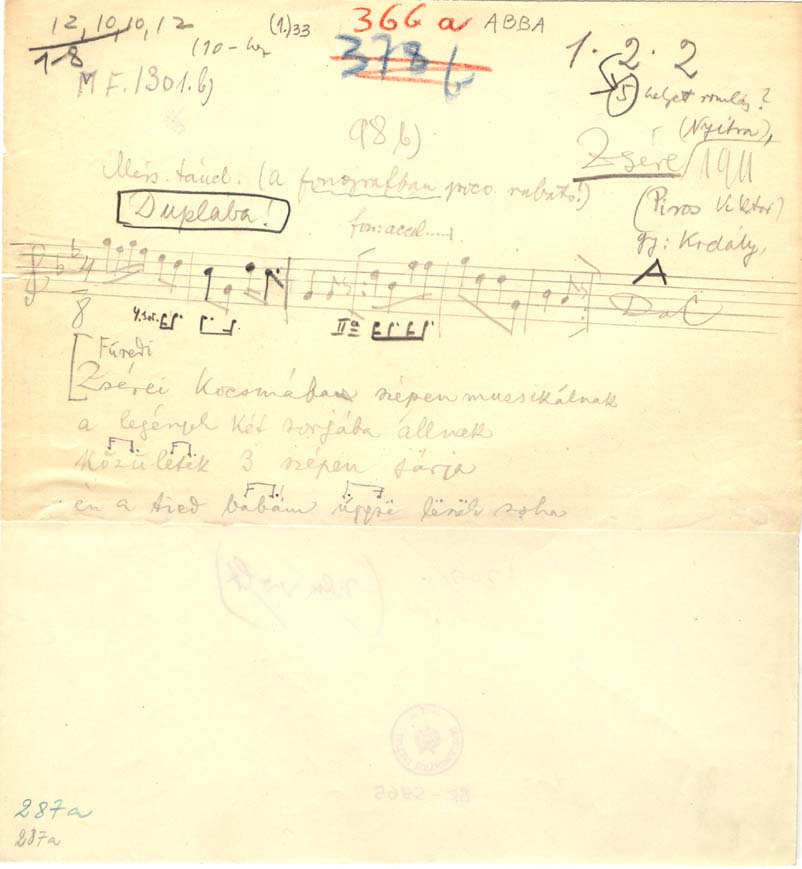 12, 10, 10, 12 (1.)33 366 a ABBA
1-8 (10-
378 b 1. 2. 2
M F. 1301. b) 5 helyett romlás?
98, b) (Nyitra),
Zsére 1911
Mérs. tánd. (a fonografban poco rubato!)
Duplaba! (Piros Viktor)
fon: accel..... gy: Kodály,
4
8
A
4. sor. IIª D. a C.
Füredi
Zsérei Kocsmában szépen mussikálnak
a legények két sorjába állnak
Közületëk 3 szépen járja
én a tied babám úgysë lëszëk soha
287a
287a